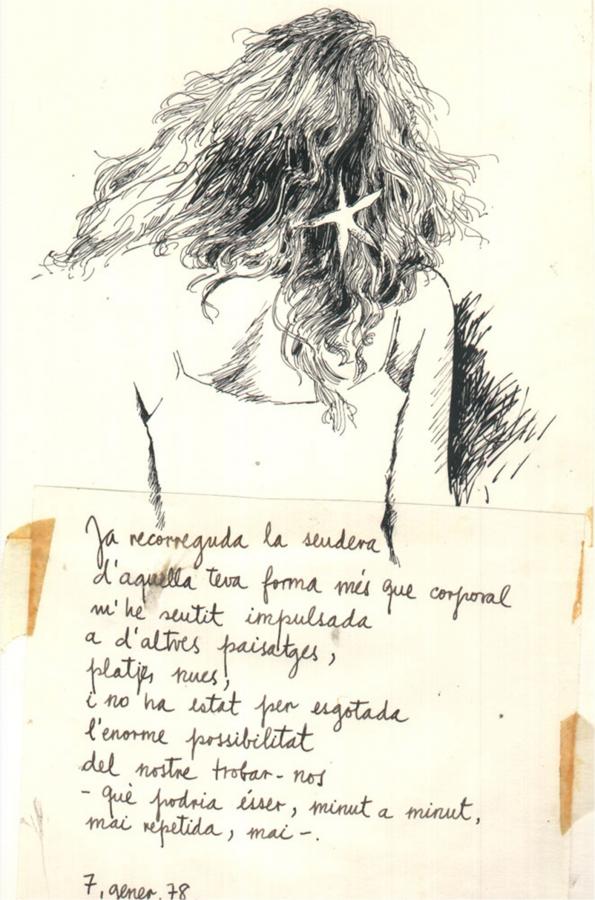 Ja recorreguda la sendera
d'aquella teva forma més que corporal
m'he sentit impulsada
a d'altres paisatges,
platjes nues,
i no ha estat per esgotada
l'enorme possibilitat
del nostre trobar-nos
- què podria ésser, minut a minut,
mai repetida, mai -.
7, gener, 78